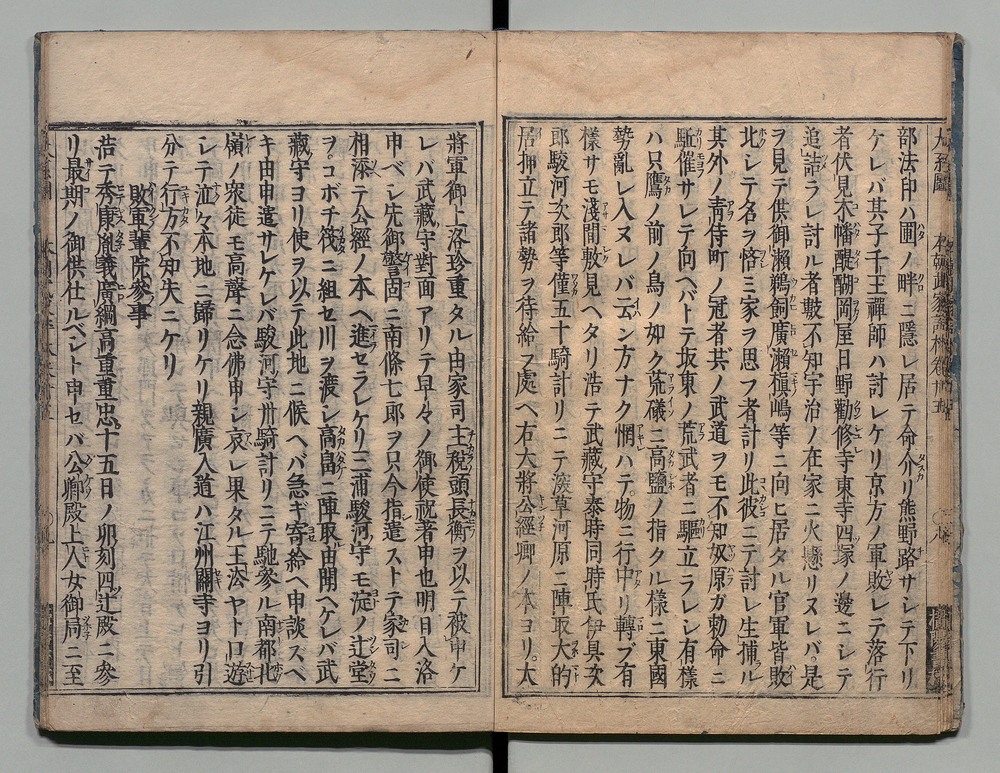 部法印ハ圃ノ畔ニ隱レ居テ命介リ熊野路サシテ下リ
ケレバ其子千王禪師ハ討レケリ京方ノ軍敗レテ落行
者伏見木幡醍醐岡屋日野勸修寺東寺四塚ノ邊ニシテ
追詰ラレ討ル者數不知宇治ノ在家ニ火懸リヌレバ是
ヲ見テ供御瀨鵜飼廣瀨槇嶋等ニ向ヒ居タル官軍皆敗
北シテ名ヲ悋ミ家ヲ思フ者計リ此彼ニテ討レ生捕ル
其外ノ靑侍町ノ冠者共ノ武道ヲモ不知奴原ガ勅命ニ
駈催サレテ向ヘバトテ坂東ノ荒武者ニ驅立ラレシ有樣
ハ只鷹ノ前ノ鳥ノ如ク荒礒ニ高鹽ノ指クル樣ニ東國
勢亂レ入ヌレバ云ン方ナク惘ハテ物ニ行中リ轉ブ有
樣サモ淺間敷見ヘタリ浩テ武藏守泰時同時氏伊具次
郎駿河次郎等僅五十騎計リニテ深草河原ニ陣取大的
居拵立テ諸勢ヲ待給フ處ヘ右大將公經卿ノ本ヨリ大
將軍御上洛珍重タル由家司主稅頭長衡ヲ以テ被申ケ
レバ武藏守對面アリテ早々ノ御使祝着申也明日入洛
申ベシ先御警固ニ南條七郎ヲ只今指遣ストテ家司ニ
相添テ公經ノ本ヘ進セラレケリ三浦駿河守モ淀ノ辻堂
ヲコボチ筏ニ組セ川ヲ渡シ高畠ニ陣取由聞ヘケレバ武
藏守ヨリ使ヲ以テ此地ニ候ヘバ急ギ寄給ヘ申談スベ
キ由申遣サレケレバ駿河守卅騎計リニテ馳參ル南都北
嶺ノ衆徒モ高聲ニ念佛申シ哀レ果タル王法ヤト口遊
シテ泣々本地ニ歸リケリ親廣入道ハ江州關寺ヨリ引
分テ行方不知失ニケリ
敗軍輩院參事
浩テ秀康胤義廣綱高重重忠十五日ノ卯刻四辻殿ニ參
リ最期ノ御供仕ルベシト申セバ公卿殿上人女御局ニ至